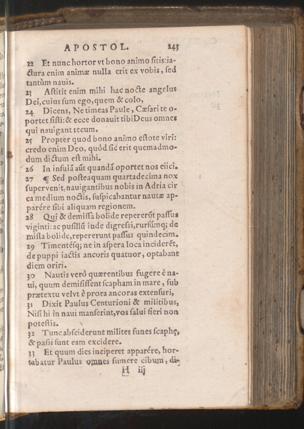 APOSTOL. 243
22 Et nunc hortor vt bono animo sitis: ia-
ctura enim animæ nulla erit ex vobis, sed
tantùm nauis.
23 Astitit enim mihi hac nocte angelus
Dei, cuius sum ego, quem & colo,
24 Dicens, Ne timeas Paule, Cæsari te o-
portet sisti: & ecce donauit tibi Deus omnes
qui nauigant tecum.
25 Propter quod bono animo estote viri:
credo enim Deo, quòd sic erit quemadmo-
dum dictum est mihi.
26 In insulã aũt quandã oportet nos eiici.
27 ¶ Sed posteaquam quartadecima nox
superuenit, nauigantibus nobis in Adria cir
ca medium noctis, suspicabantur nautæ ap-
parére sibi aliquam regionem.
28 Qui & demissa bolide repererũt passus
viginti: ac pusillũ inde digressi, rursũmq; de
missa bolide, repererunt passus quindecim.
29 Timentésq; ne in aspera loca inciderẽt,
de puppi iactis ancoris quatuor, optabant
diem oriri.
30 Nautis verò quærentibus fugere è na-
ui, quum demisissent scapham in mare, sub
prætextu velut è prora ancoras extensuri,
31 Dixit Paulus Centurioni & militibus,
Nisi hi in naui manserint, vos salui fieri non
potestis.
32 Tunc absciderunt milites funes scaphę,
& passi sunt eam excidere.
33 Et quum dies inciperet apparére, hor-
tabatur Paulus omnes sumere cibum, di-
H iij